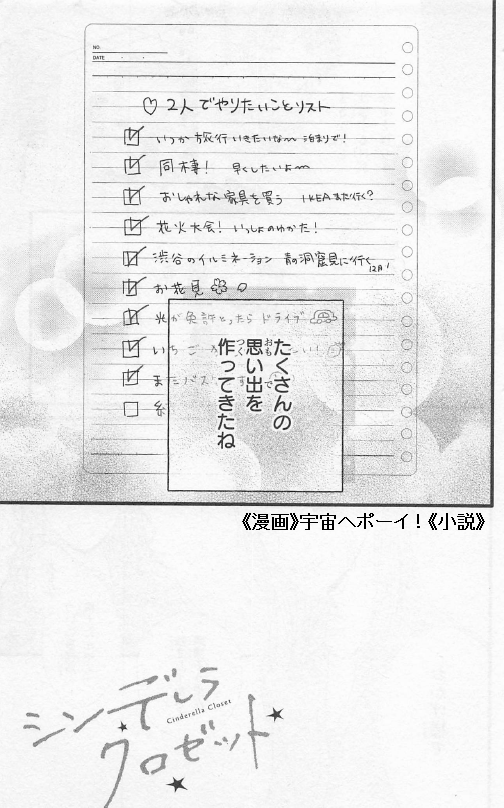 NO.
DATE
♡ 2人でやりたいことリスト
いつか旅行いきたいな〜 泊まりで!
同棲! 早くしたいよ〜
おしゃれな家具を買う IKEAまた行く?
花火大会! いっしょのゆかた!
渋谷のイルミネーション 青の洞窟見に行く
12月!
お花見
光が免許とったらドライブ
いちご
また
たくさんの
思い出を
作ってきたね
おも
で
つく
《漫画》宇宙へポーイ!《小説》
シンデレラ
Cinderella Closet
クロゼット